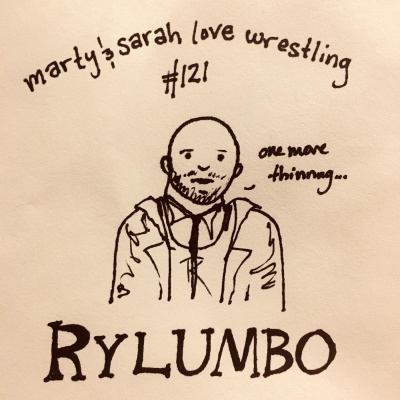 marty & sarah love wrestling
#121
one more
thinnng...
RYLUMBO